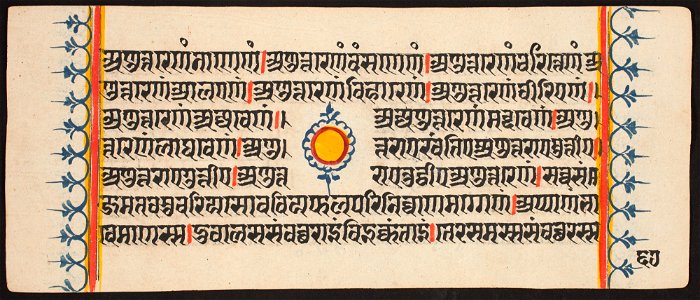 अणुत्तरेणंनाणेणं।अणुत्तरेणंदंसणेणं।अणुत्तरेणंचरित्तेणंअ
णुत्तरेणंआलएणं।अणुत्तरेणंविहारेणं।अणुत्तरेणंवीरिएणं।
अणुत्तरेणंअज्जवेणं॥ अणुत्तरेणंमद्दवेणं।अणु
त्तरेणंलाघवेणं।अणु। त्तराएखंतीएअणुत्तराएमुत्तीए।
अणुत्तराएगुत्तीए।अणुत्त राएतुट्ठीएअणुत्तरेणं।सच्चसं॥
जमतवसुचरियसोवचियफलपरिनिव्वाणमग्गेणं।अप्पाणंभा
वेमाणस्स।दुवालससंवच्छराइंविइक्कंताइं।तेरसमस्ससंवच्छरस्स